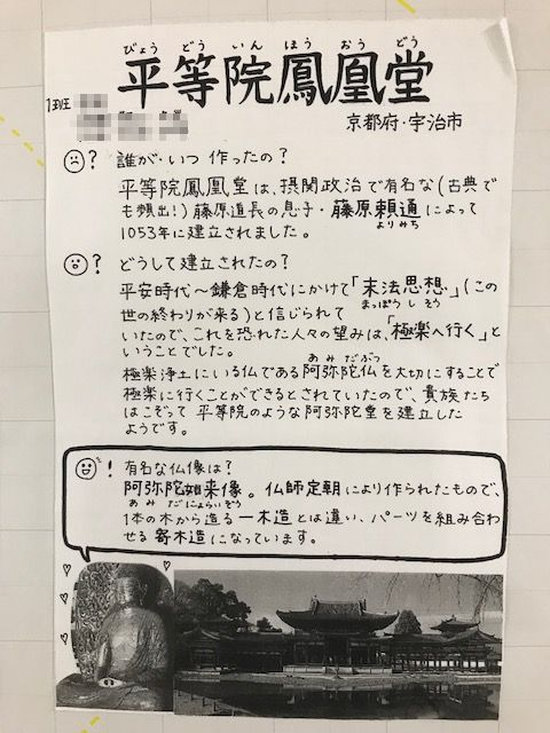 びょう どう いん ほう おう どう
平等院鳳凰堂
1班
京都府・宇治市
? 誰が・いつ 作ったの?
平等院鳳凰堂は、摂関政治で有名な(古典で
も頻出!)藤原道長の息子・藤原頼通によって
よりみち
1053年に建立されました。
? どうして建立されたの?
平安時代～鎌倉時代にかけて「末法思想」(この
まっぽう しそう
世の終わりが来る)と信じられて
いたので、これを恐れた人々の望みは、「極楽へ行く」と
いうことでした。
あみ だぶつ
極楽浄土にいる仏である阿弥陀仏を大切にすることで
極楽に行くことができるとされていたので、貴族たち
はこぞって 平等院のような阿弥陀堂を建立した
ようです。
! 有名な仏像は?
阿弥陀如来像。仏師定朝により作られたもので、
あ み だ にょらいぞう
1本の木から造る一木造とは違い、パーツを組み合わ
せる寄木造になっています。